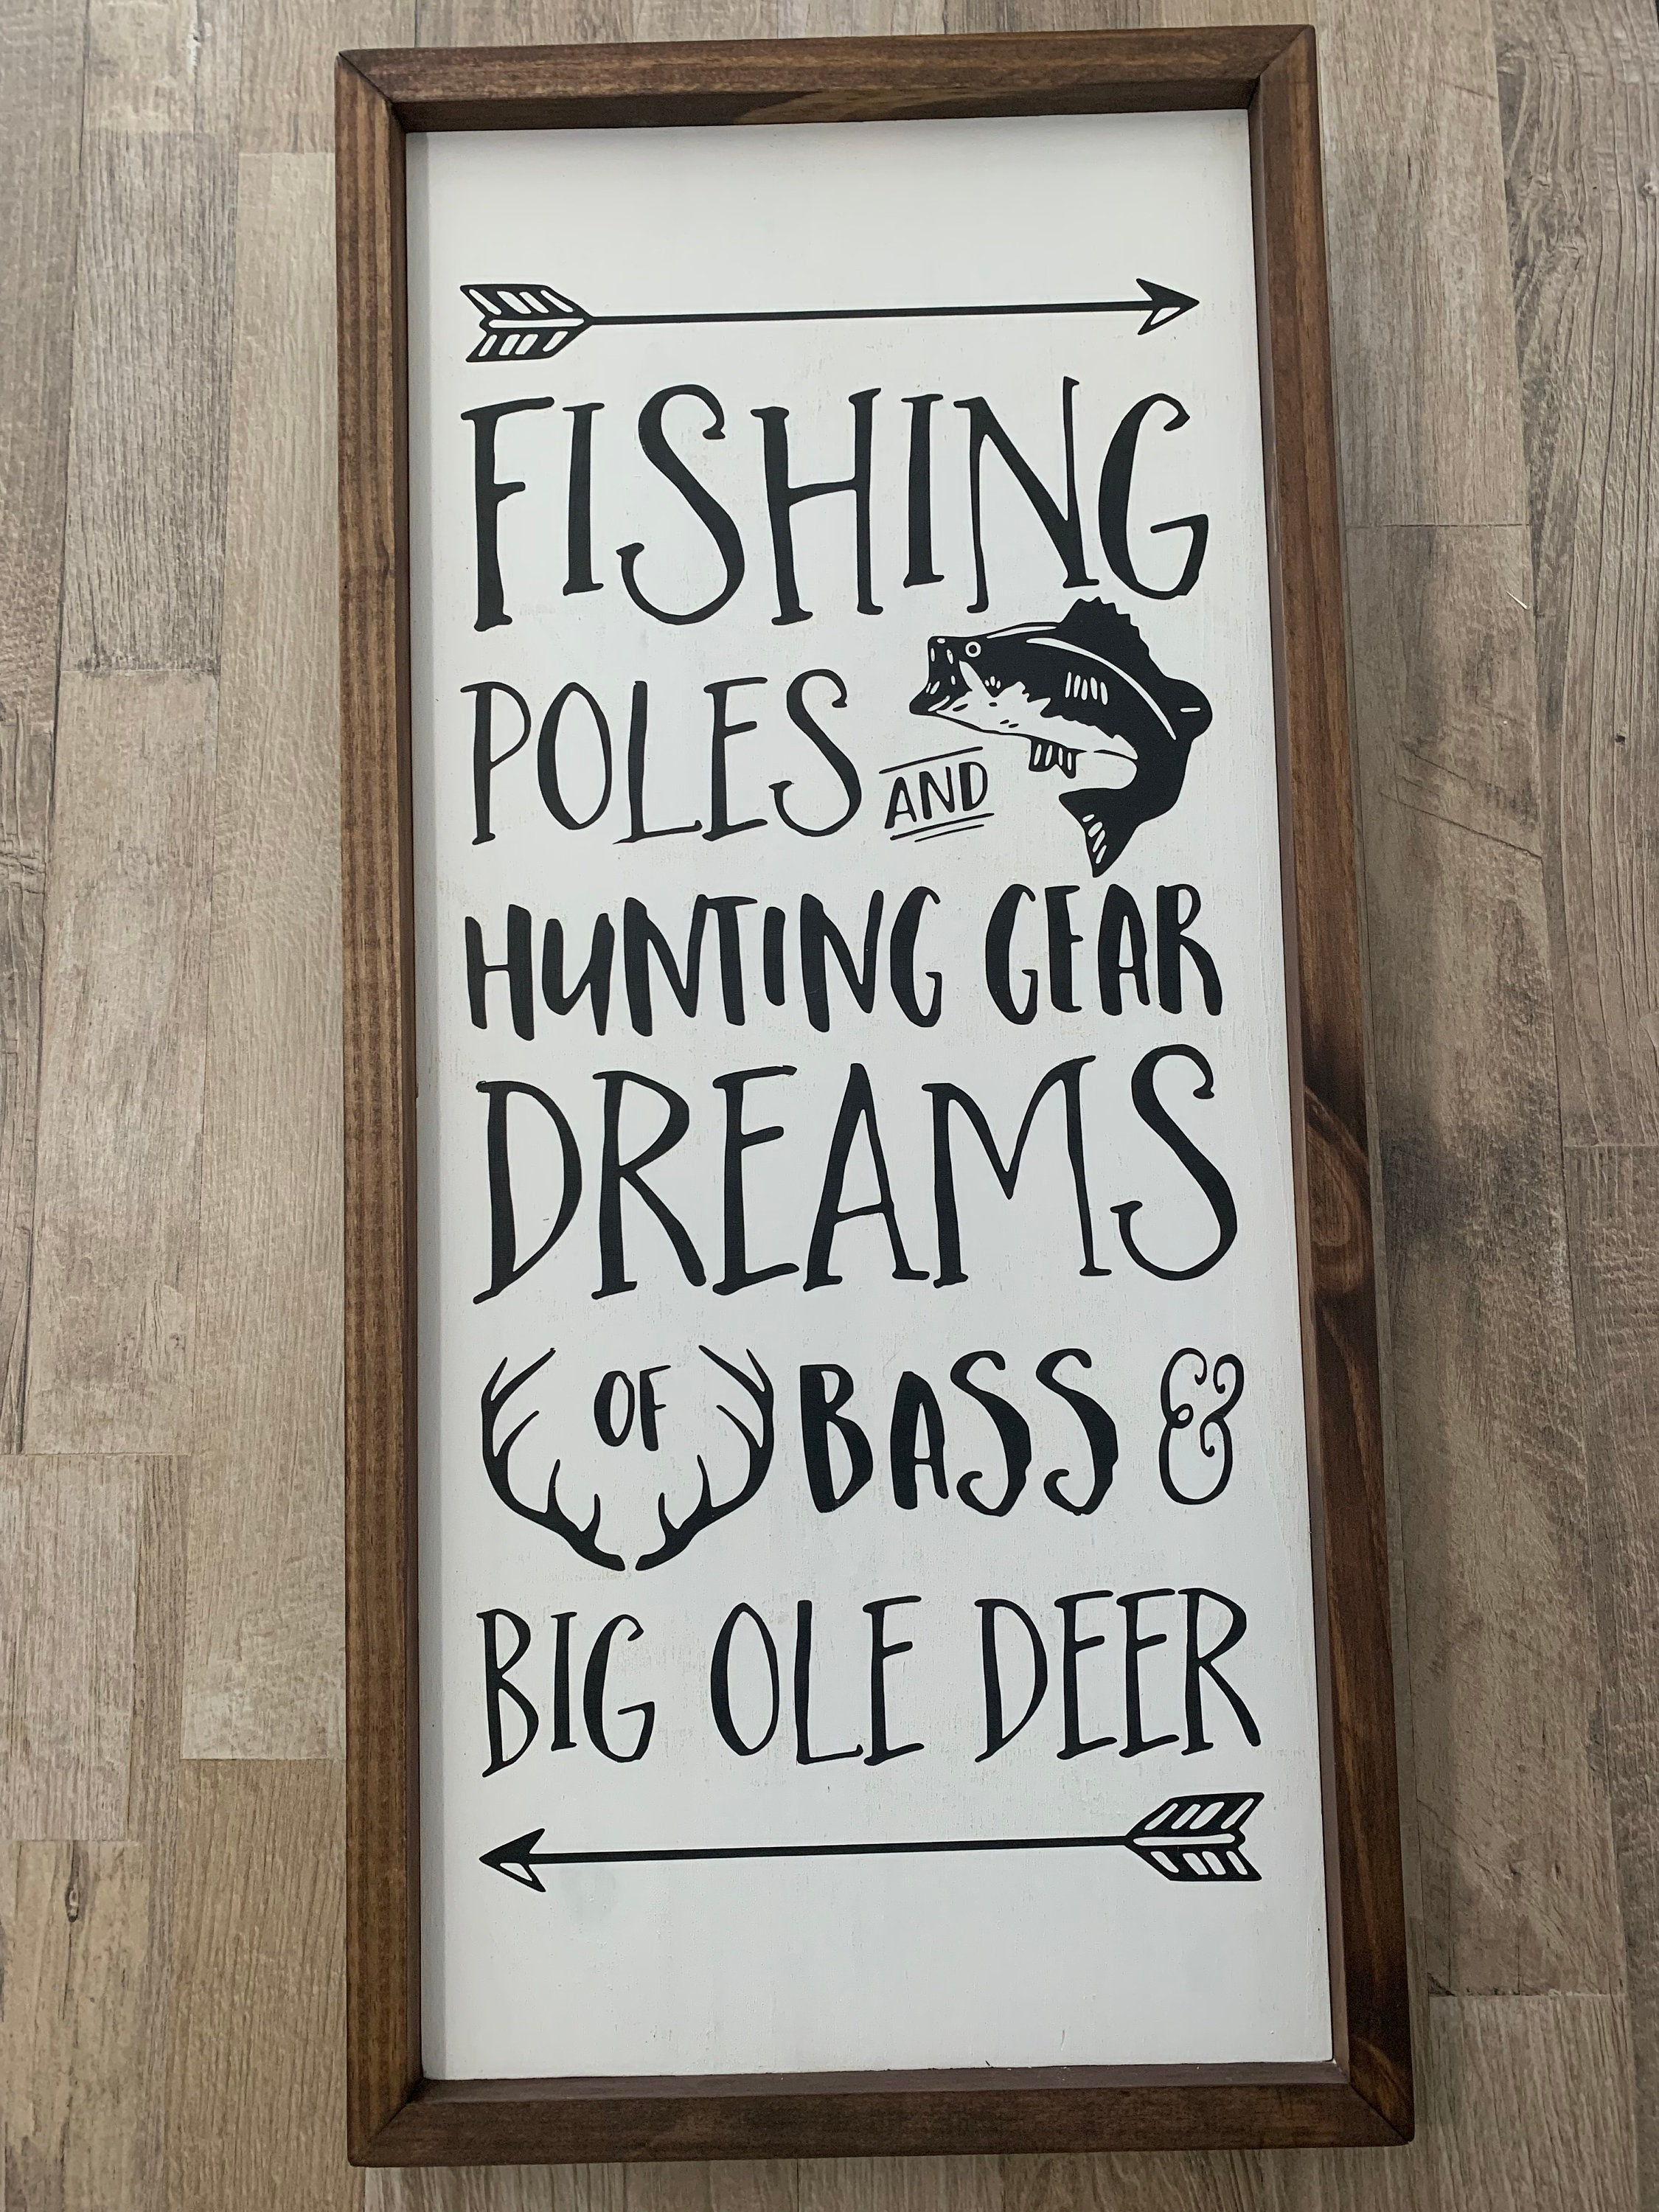 FISHING
POLES AND
HUNTING GEAR
DREAMS
OF BASS &
BIG OLE DEER